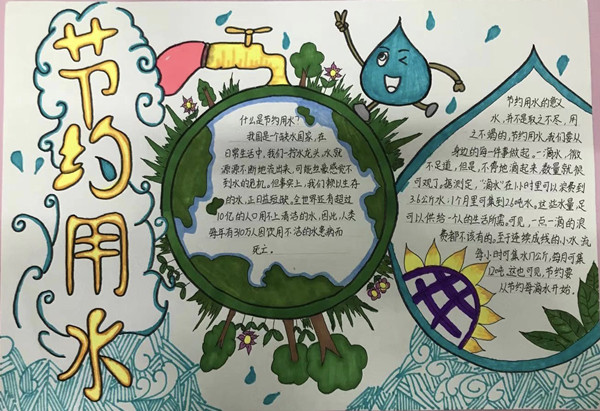 节约用水
什么是节约用水?
我国是个缺水国家,在
日常生活中,我们一拧水龙头,水就
源源不断地流出来,可能丝毫感觉不
到水的危机。但事实上,我们赖以生存
的水,正日益短缺。全世界还有超过
10亿的人口用不上清洁的水。因此,人类
每年有310万人因饮用不洁的水患病而
死亡。
节约用水的意义
水,并不是取之不尽,用
之不竭的,节约用水,我们要从
身边的每一件事做起。一滴水,微
不足道,但是,不停地滴起来,数量就很
可观了。据测定,“滴水”在1小时里可以浪费到
3.6公斤水;1个月里可集到2.6吨水,这些水量,足
可以供给一个人的生活所需。可见,一点一滴的浪
费都不该有的。至于连续成线的小水流,
每小时可集水17公斤,每月可集
12吨。这也可见,节约要
从节约每滴水开始。